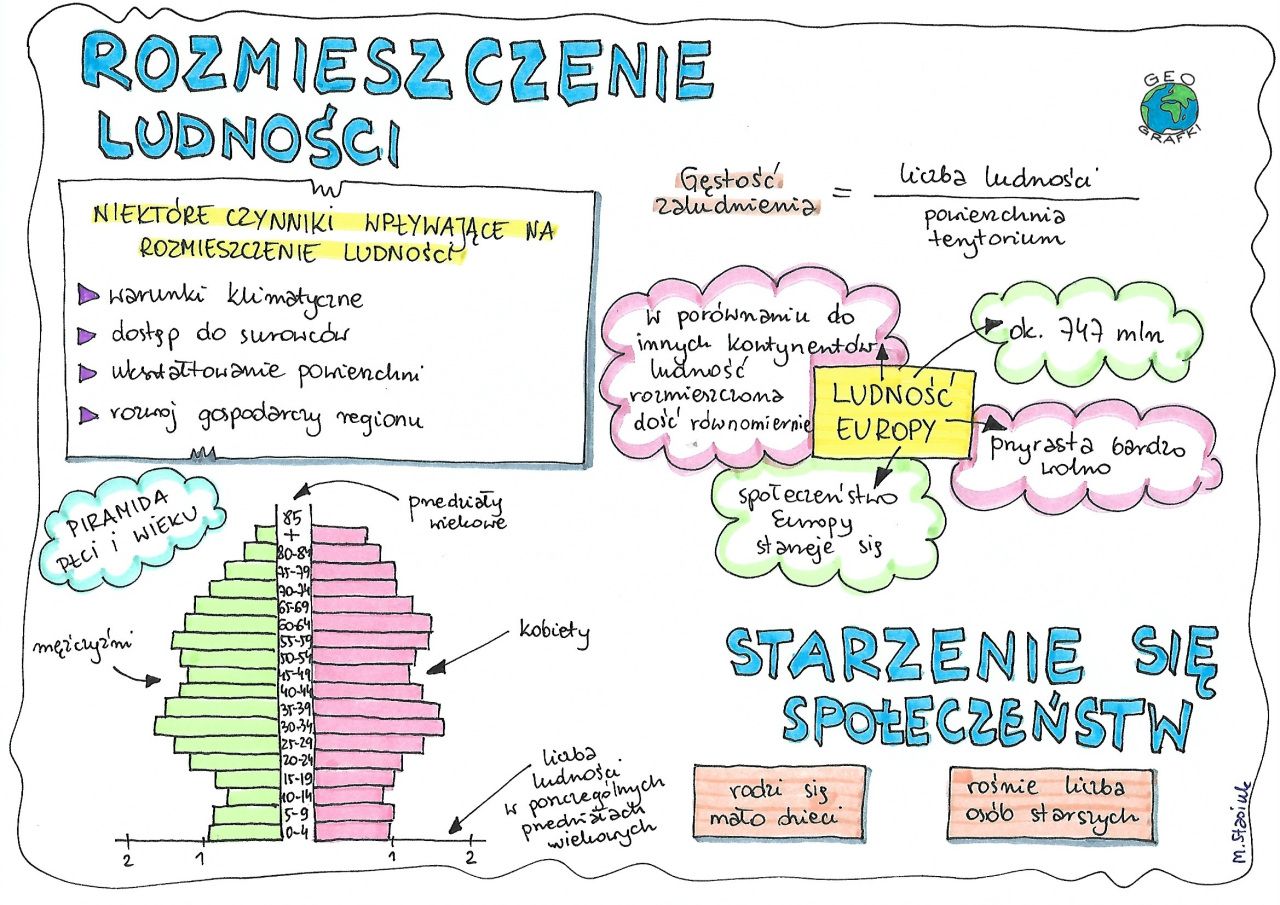 ROZMIESZCZENIE
LUDNOŚCI
GEO
GRAFKI
NIEKTÓRE CZYNNIKI WPŁYWAJĄCE NA
ROZMIESZCZENIE LUDNOŚCI
warunki klimatyczne
dostęp do surowców
ukształtowanie powierzchni
rozwój gospodarczy regionu
Gęstość
zaludnienia
=
liczba ludności
powierzchnia
terytorium
w porównaniu do
innych kontynentów
ludność
rozmieszczona
dość równomiernie
LUDNOŚĆ
EUROPY
ok. 747 mln
przyrasta bardzo
wolno
społeczeństwo
Europy
starzeje się
PIRAMIDA
PŁCI i WIEKU
przedziały
wiekowe
85
+
80-84
75-79
70-74
65-69
60-64
55-59
50-54
45-49
40-44
35-39
30-34
25-29
20-24
15-19
10-14
5-9
0-4
mężczyźni
kobiety
liczba
ludności
w poszczególnych
przedziałach
wiekowych
2 1 1 2
STARZENIE SIĘ
SPOŁECZEŃSTW
rodzi się
mało dzieci
rośnie liczba
osób starszych
M.Stasiuk